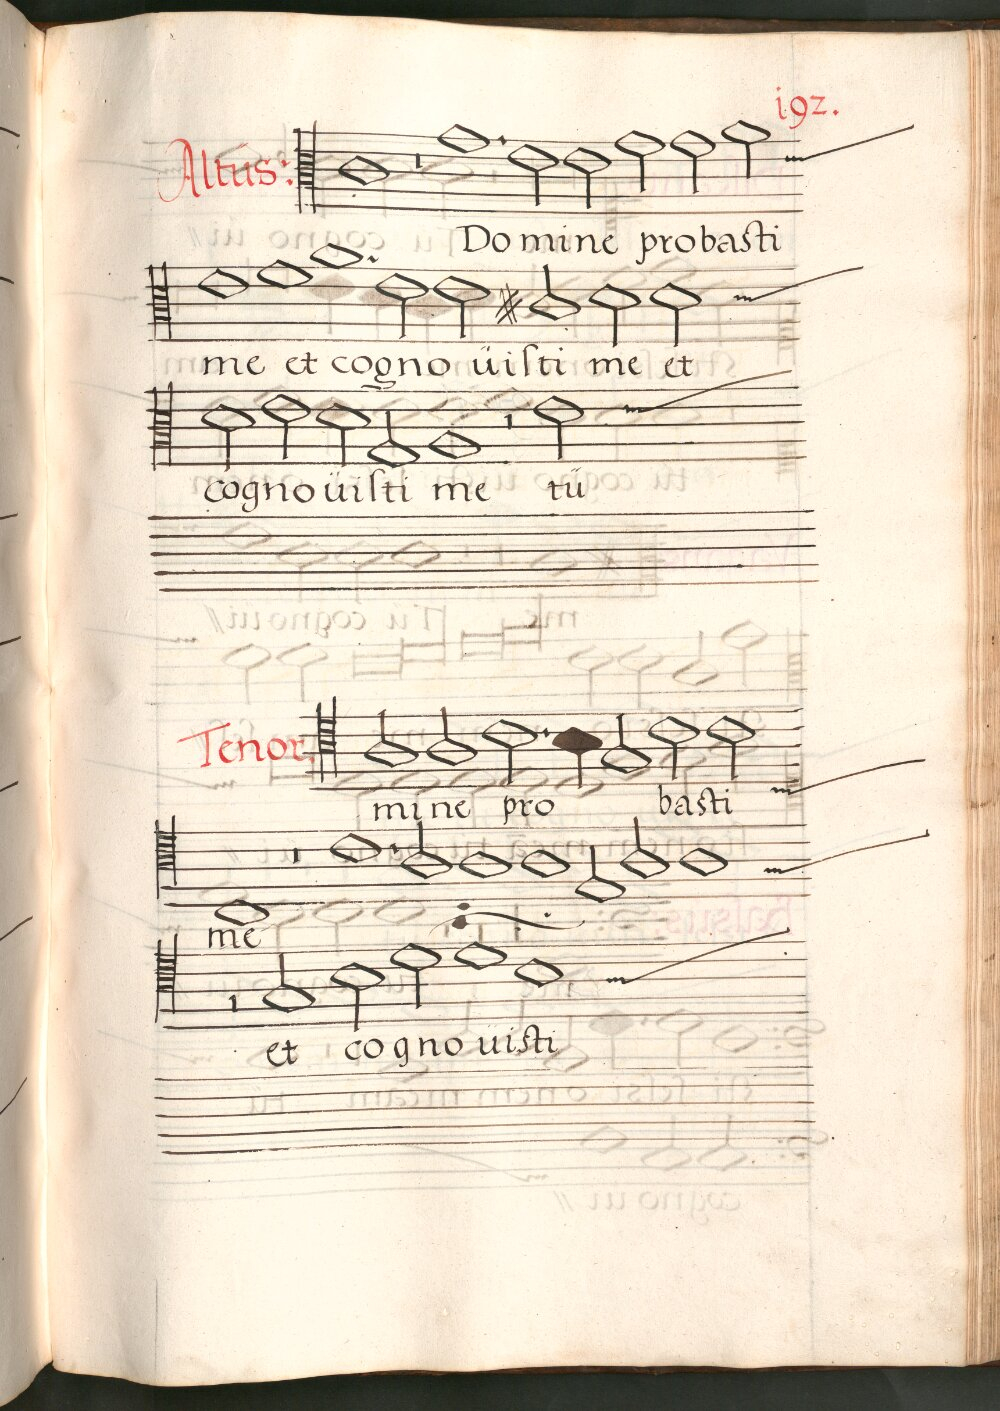 192.
Altus:
Domine probasti
me et cogno üisti me et
cogno üisti me tü
Tenor.
mine pro basti
me
et cogno uisti